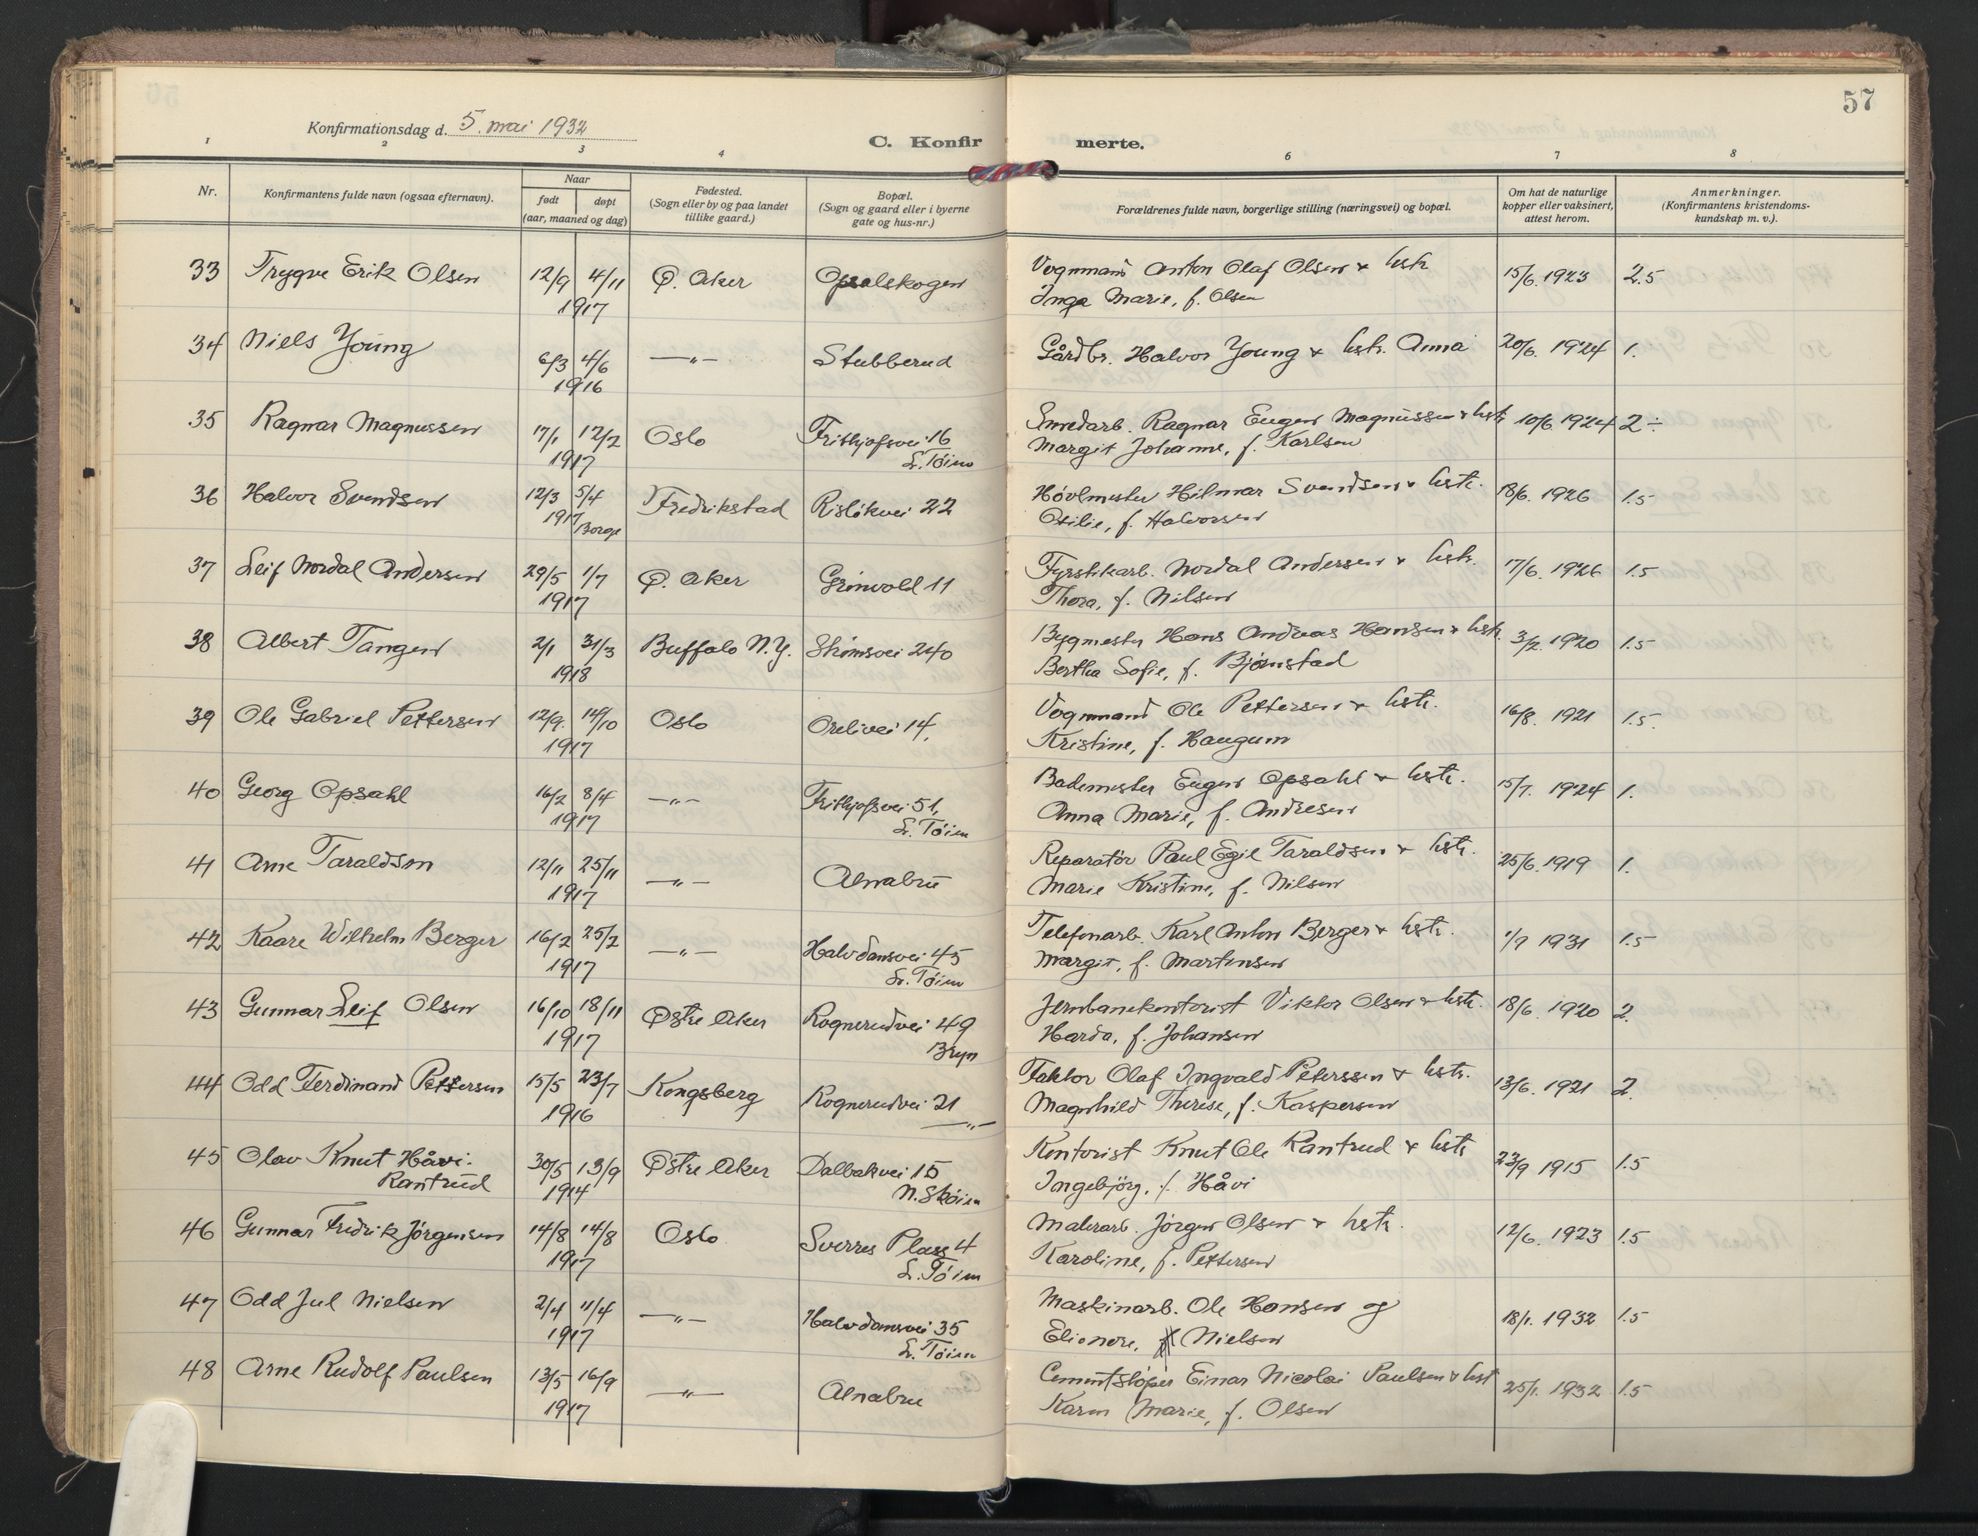 57
Konfirmationsdag d. 5. mai 1932
C. Konfirmerte.
1 2 3 4 6 7 8
Nr.
Konfirmantens fulde navn (ogsaa efternavn).
Naar
født døpt
(aar, maaned og dag)
Fødested.
(Sogn eller by og paa landet
tillike gaard.)
Bopæl.
(Sogn og gaard eller i byerne
gate og hus-nr.)
Forældrenes fulde navn, borgerlige stilling (næringsvei) og bopæl.
Om hat de naturlige
kopper eller vaksinert,
attest herom.
Anmerkninger.
(Konfirmantens kristendoms-
kundskap m. v.).
33 Trygve Erik Olsen 12/9 4/11 Ø. Aker Opsalskogen Vognmand Anton Olaf Olsen & hstr. 15/6. 1923 2.5
1917 Inga Marie, f. Olsen
34 Niels Young 6/3 4/6 —"— Stubberud Gårdbr. Halvor Young & hstr. Anna 20/6. 1924 1.
1916
35 Ragnar Magnussen 17/1 12/2 Oslo Frithjofsvei 16 Smedarb. Ragnar Eugen Magnussen & hstr. 10/6 1924 2÷
1917 L. Tøien Margit Johanne, f. Karlsen
36 Halvor Svendsen 12/3 5/4 Fredrikstad Risløkvei 22 Høvlmester Hilmar Svendsen & hstr. 18/6. 1926 1.5
1917 Borge Otilie, f. Halvorsen
37 Leif Nordal Andersen 29/5 1/7 Ø. Aker Grønvold 11 Fyrstikarb. Nordal Andersen & hstr. 17/6. 1926 1.5
1917 Thora, f. Nilsen
38 Albert Tangen 2/1 31/3 Buffalo N.Y. Strømsvei 240 Bygmester Hans Andreas Hansen & hstr. 3/2. 1920 1.5
1918 Bertha Sofie, f. Bjørnstad
39 Ole Gabriel Pettersen 12/9. 14/10 Oslo Orelivei 14. Vognmand Ole Pettersen & hstr. 16/8. 1921 1.5.
1917 Kristine, f. Haugum
40 Georg Opsahl 16/2 8/4 —"— Frithjofsvei 51, Bademester Eugen Opsahl & hstr. 15/7. 1924 1.
1917 L. Tøien Anna Marie, f. Andresen
41 Arne Taraldsen 12/11 25/11 —"— Alnabru Reparatør Paul Egil Taraldsen & hstr. 25/6. 1919 1.
1917 Marie Kristine, f. Nilsen
42 Kaare Wilhelm Berger 16/2 25/2 —"— Halvdansvei 45 Telefonarb. Karl Anton Berger & hstr. 1/9 1931 1.5
1917 L. Tøien Margit, f. Martinsen
43 Gunnar Leif Olsen 16/10 18/11 Østre Aker Rognerudvei 49 Jernbanekontorist Viktor Olsen & hstr. 18/6. 1920 2.
1917 Bryn Harda, f. Johansen
44 Odd Ferdinand Pettersen 15/5 23/7 Kongsberg Rognerudvei 21 Faktor Olaf Ingvald Peterssen & hstr. 13/6. 1921 2.
1916 —"— Magnhild Therese, f. Kaspersen
45 Olav Knut Håvi- 30/5 13/9 Østre Aker Dalbakvei 15 Kontorist Knut Ole Rantrud & hstr 23/9 1915 1.5
Rantrud 1914 N. Skøien Ingebjørg, f. Håvi
46 Gunnar Fredrik Jørgensen 14/8 14/8 Oslo Sverres Plass 4 Malerarb. Jørgen Olsen & hstr. 12/6. 1923 1.5
1917 L. Tøien Karoline, f. Pettersen
47 Odd Jul Nielsen 2/4 11/4 —"— Halvdansvei 35 Maskinarb. Ole Hansen og 18/1. 1932 1.5
1917 L. Tøien Elionore, Nielsen
48 Arne Rudolf Paulsen 13/5 16/9 —"— Alnabru Cementstøper Einar Nicolai Paulsen & hst 25/1. 1932 1.5
1917 Karen Marie, f. Olsen